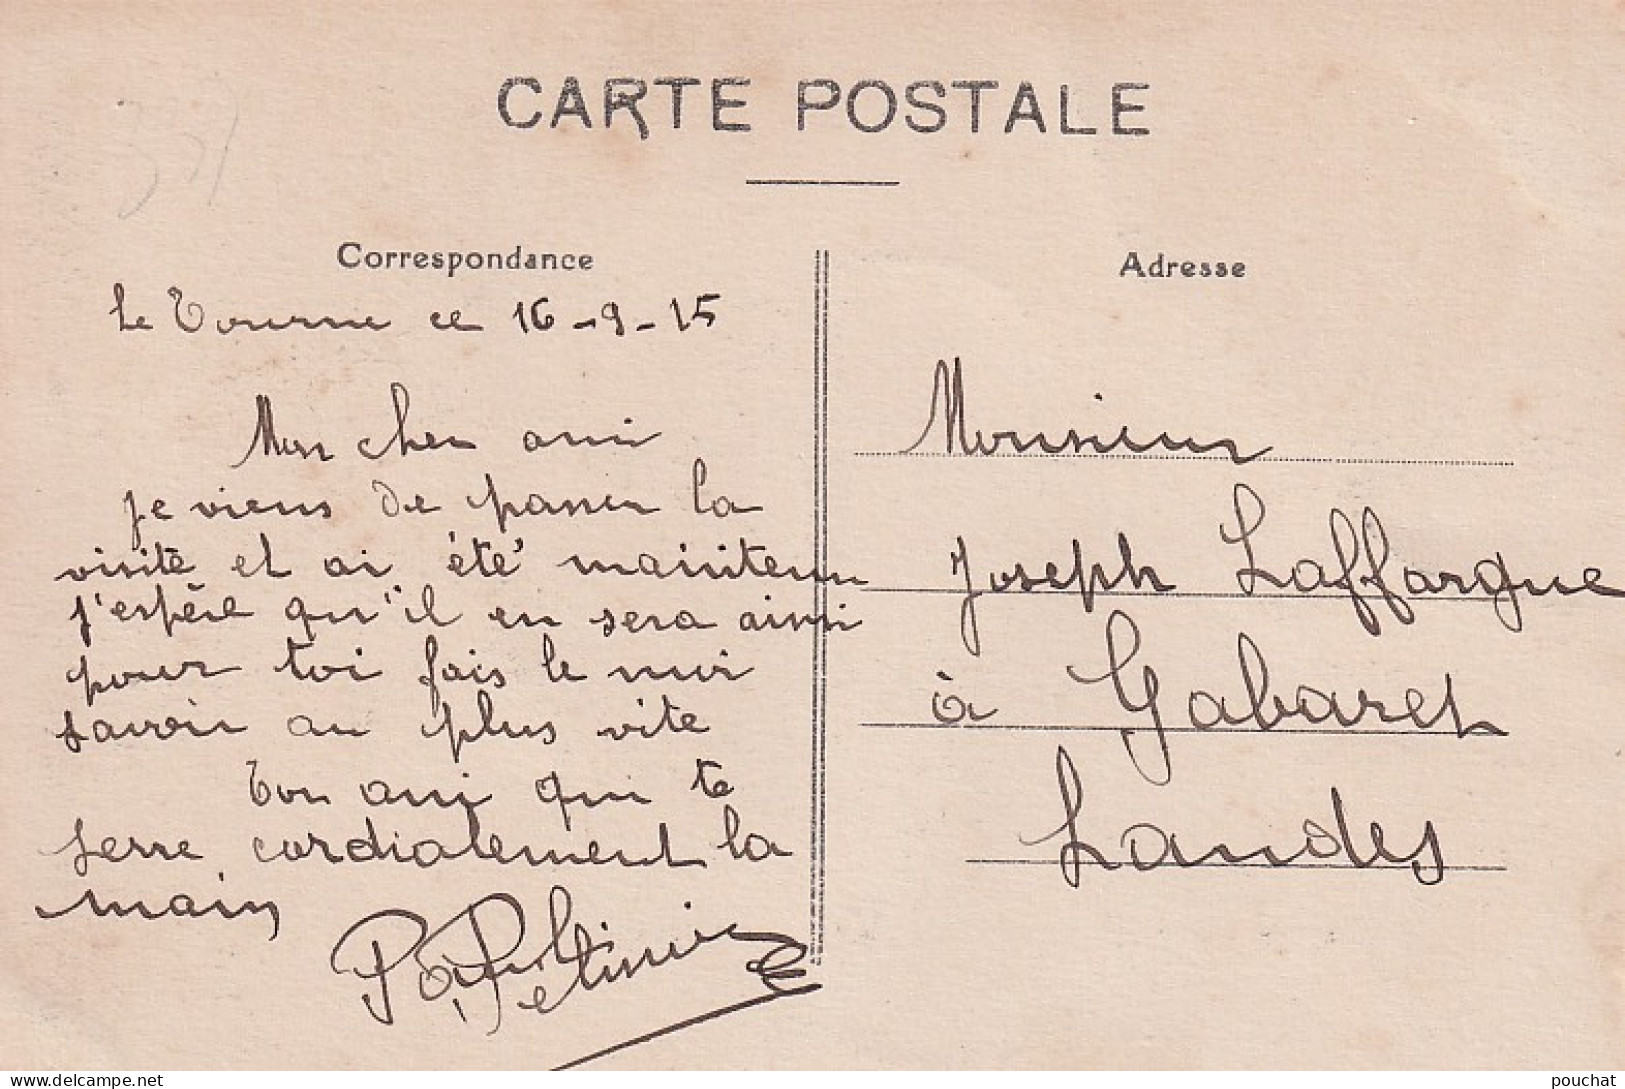 CARTE POSTALE
Correspondance
le Tourne ce 16-9-15
Mon cher ami
je viens de passer la
visite et ai été maintenu
j'espère qu'il en sera ainsi
pour toi fais le moi
savoir au plus vite
Ton ami qui te
serre cordialement la
main
Adresse
Monsieur
Joseph Laffargue
à Gabaret
Landes
pouchat